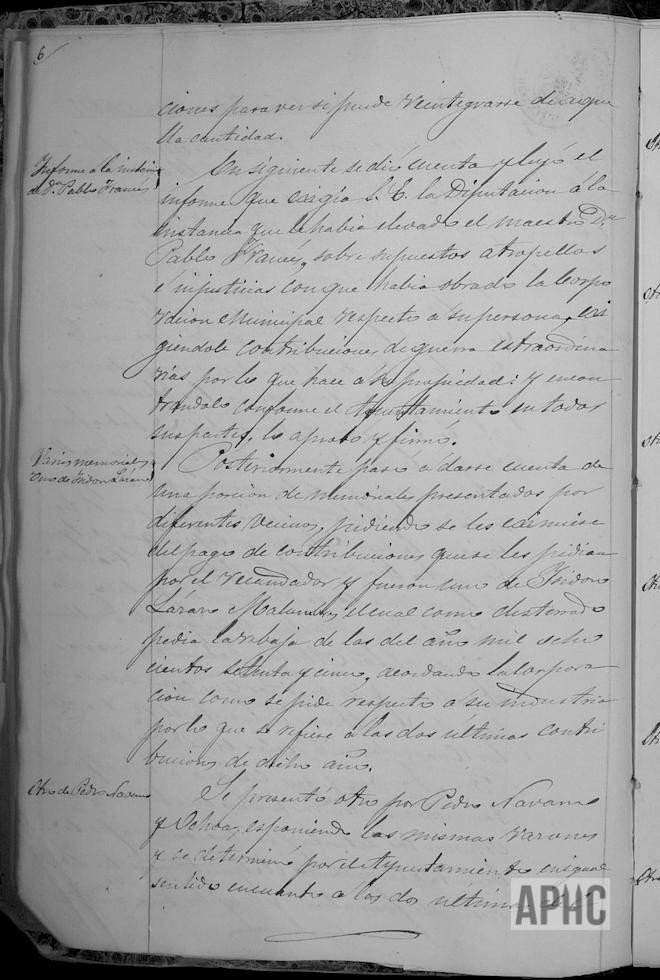 6
ciones para ver si puede reintegrarse de aque
lla cantidad.
Informe a la instancia
de Dn Pablo Frances
En siguiente se dió cuenta y leyó el
informe que exigió S. E. la Diputacion á la
instancia que le habia elevado el maestro Dn
Pablo Frances, sobre supuestos atropellos
é injusticias con que habia obrado la Corpo
racion Municipal respecto a su persona, exi
giendole contribuciones de guerra estraordina
rias por lo que hace a su propiedad: y encon
trandolo conforme el Ayuntamiento en todas
sus partes, lo aprobó y firmó.
Varios memoriales
Uno de Isidoro Lázaro
Posteriormente paso a darse cuenta de
una porcion de memoriales presentados por
diferentes vecinos, pidiendo se les eximiese
del pago de contribuciones que se les pidian
por el recaudador y fueron uno de Isidoro
Lázaro, el cual como desterrado
pedia la rebaja de las del año mil ocho
cientos setenta y cinco, acordando la corpora
cion como se pide respecto a su industria
por lo que se refiere a las dos últimas contri
buciones de dicho año.
Otro de Pedro Navarro
Se presentó otro por Pedro Navarro
y Ochoa, esponiendo las mismas razones
y se determinó por el Ayuntamiento en igual
sentido en cuanto a las dos últimas del
APHC